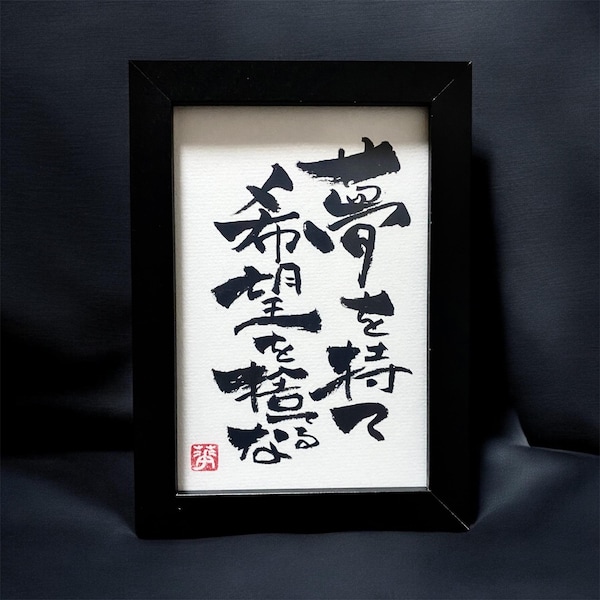 夢を持て
希望を捨てるな